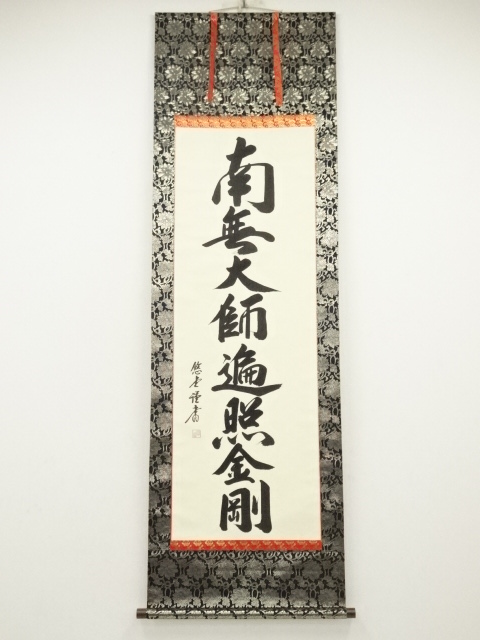 南無大師遍照金剛
悠堂謹書